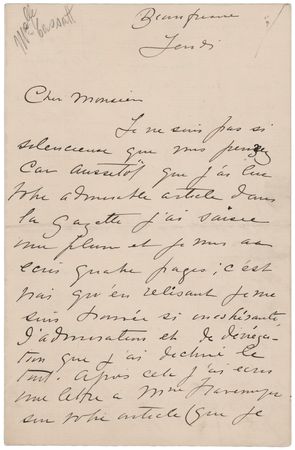 Mlle Cassatt
Beaufresne
Jeudi
Cher Monsieur
Je ne suis pas si
silencieuse que vous pensez
Car aussitôt que j'ai lue
votre admirable article dans
la Gazette j'ai saisie
une plume et je vous ai
écris quatre pages; c'est
vrai qu'en relisant je me
suis trouvée si incohérante
d'admiration et de dénéga-
tion que j'ai dechiré le
tout. Après cela j'ai écris
une lettre a Mme Havemeyer
sur votre article (que je